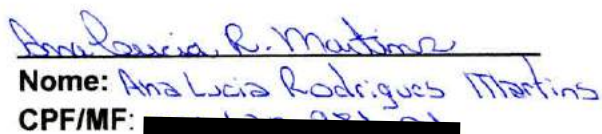 Ana Lucia R. Martins
Nome: Ana Lucia Rodrigues Martins
CPF/MF: